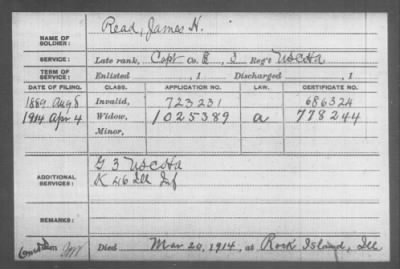 NAME OF SOLDIER: Read, James H.
SERVICE: Late rank, Capt Co. E, 3 Reg't USCHa
TERM OF SERVICE: Enlisted , 1 Discharged , 1
DATE OF FILING. CLASS. APPLICATION NO. LAW. CERTIFICATE NO.
1889 Aug 8 Invalid, 723231 686324
1914 Apr 4 Widow, 1025389 a 778244
Minor,
ADDITIONAL SERVICES: G 3 USCHa
K 46 Ill Inf
REMARKS:
Died Mar 20, 1914, at Rock Island, Ill